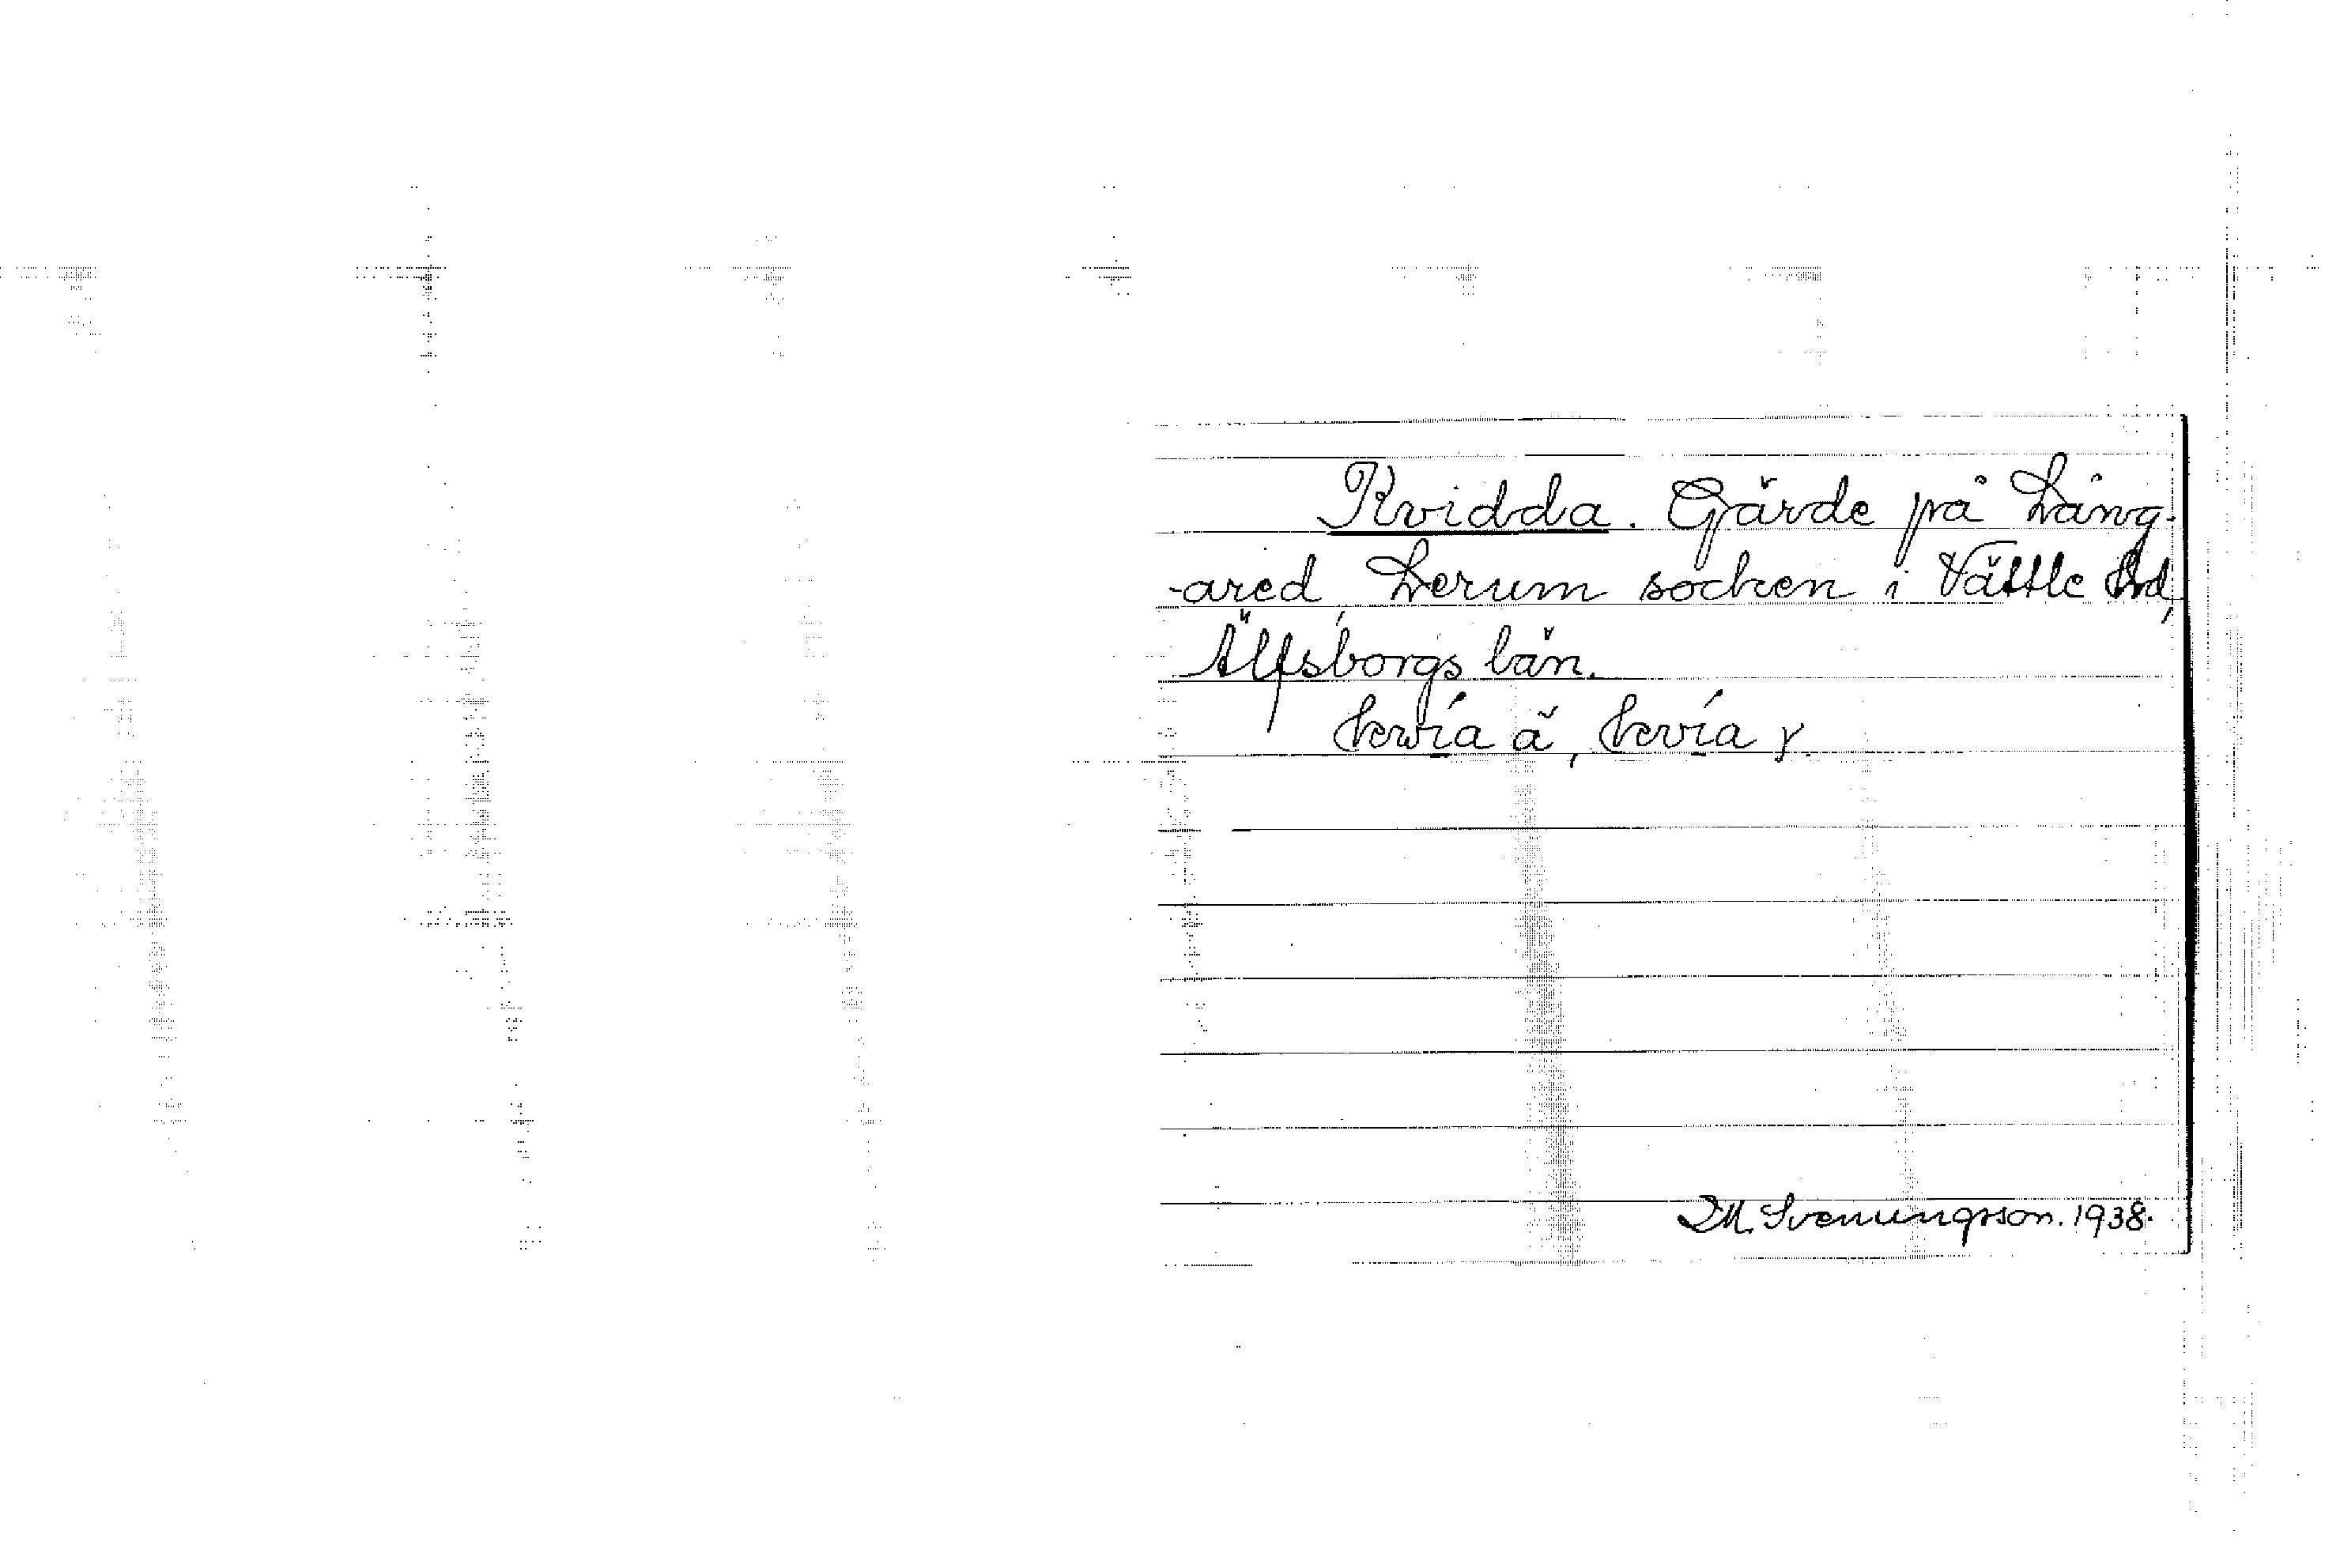 Kvidda. Gärde på Lång-
-ared, Lerum socken i Vättle hd,
Älfsborgs län.
kwía ä, kvía y.
D.M. Svenungsson. 1938.